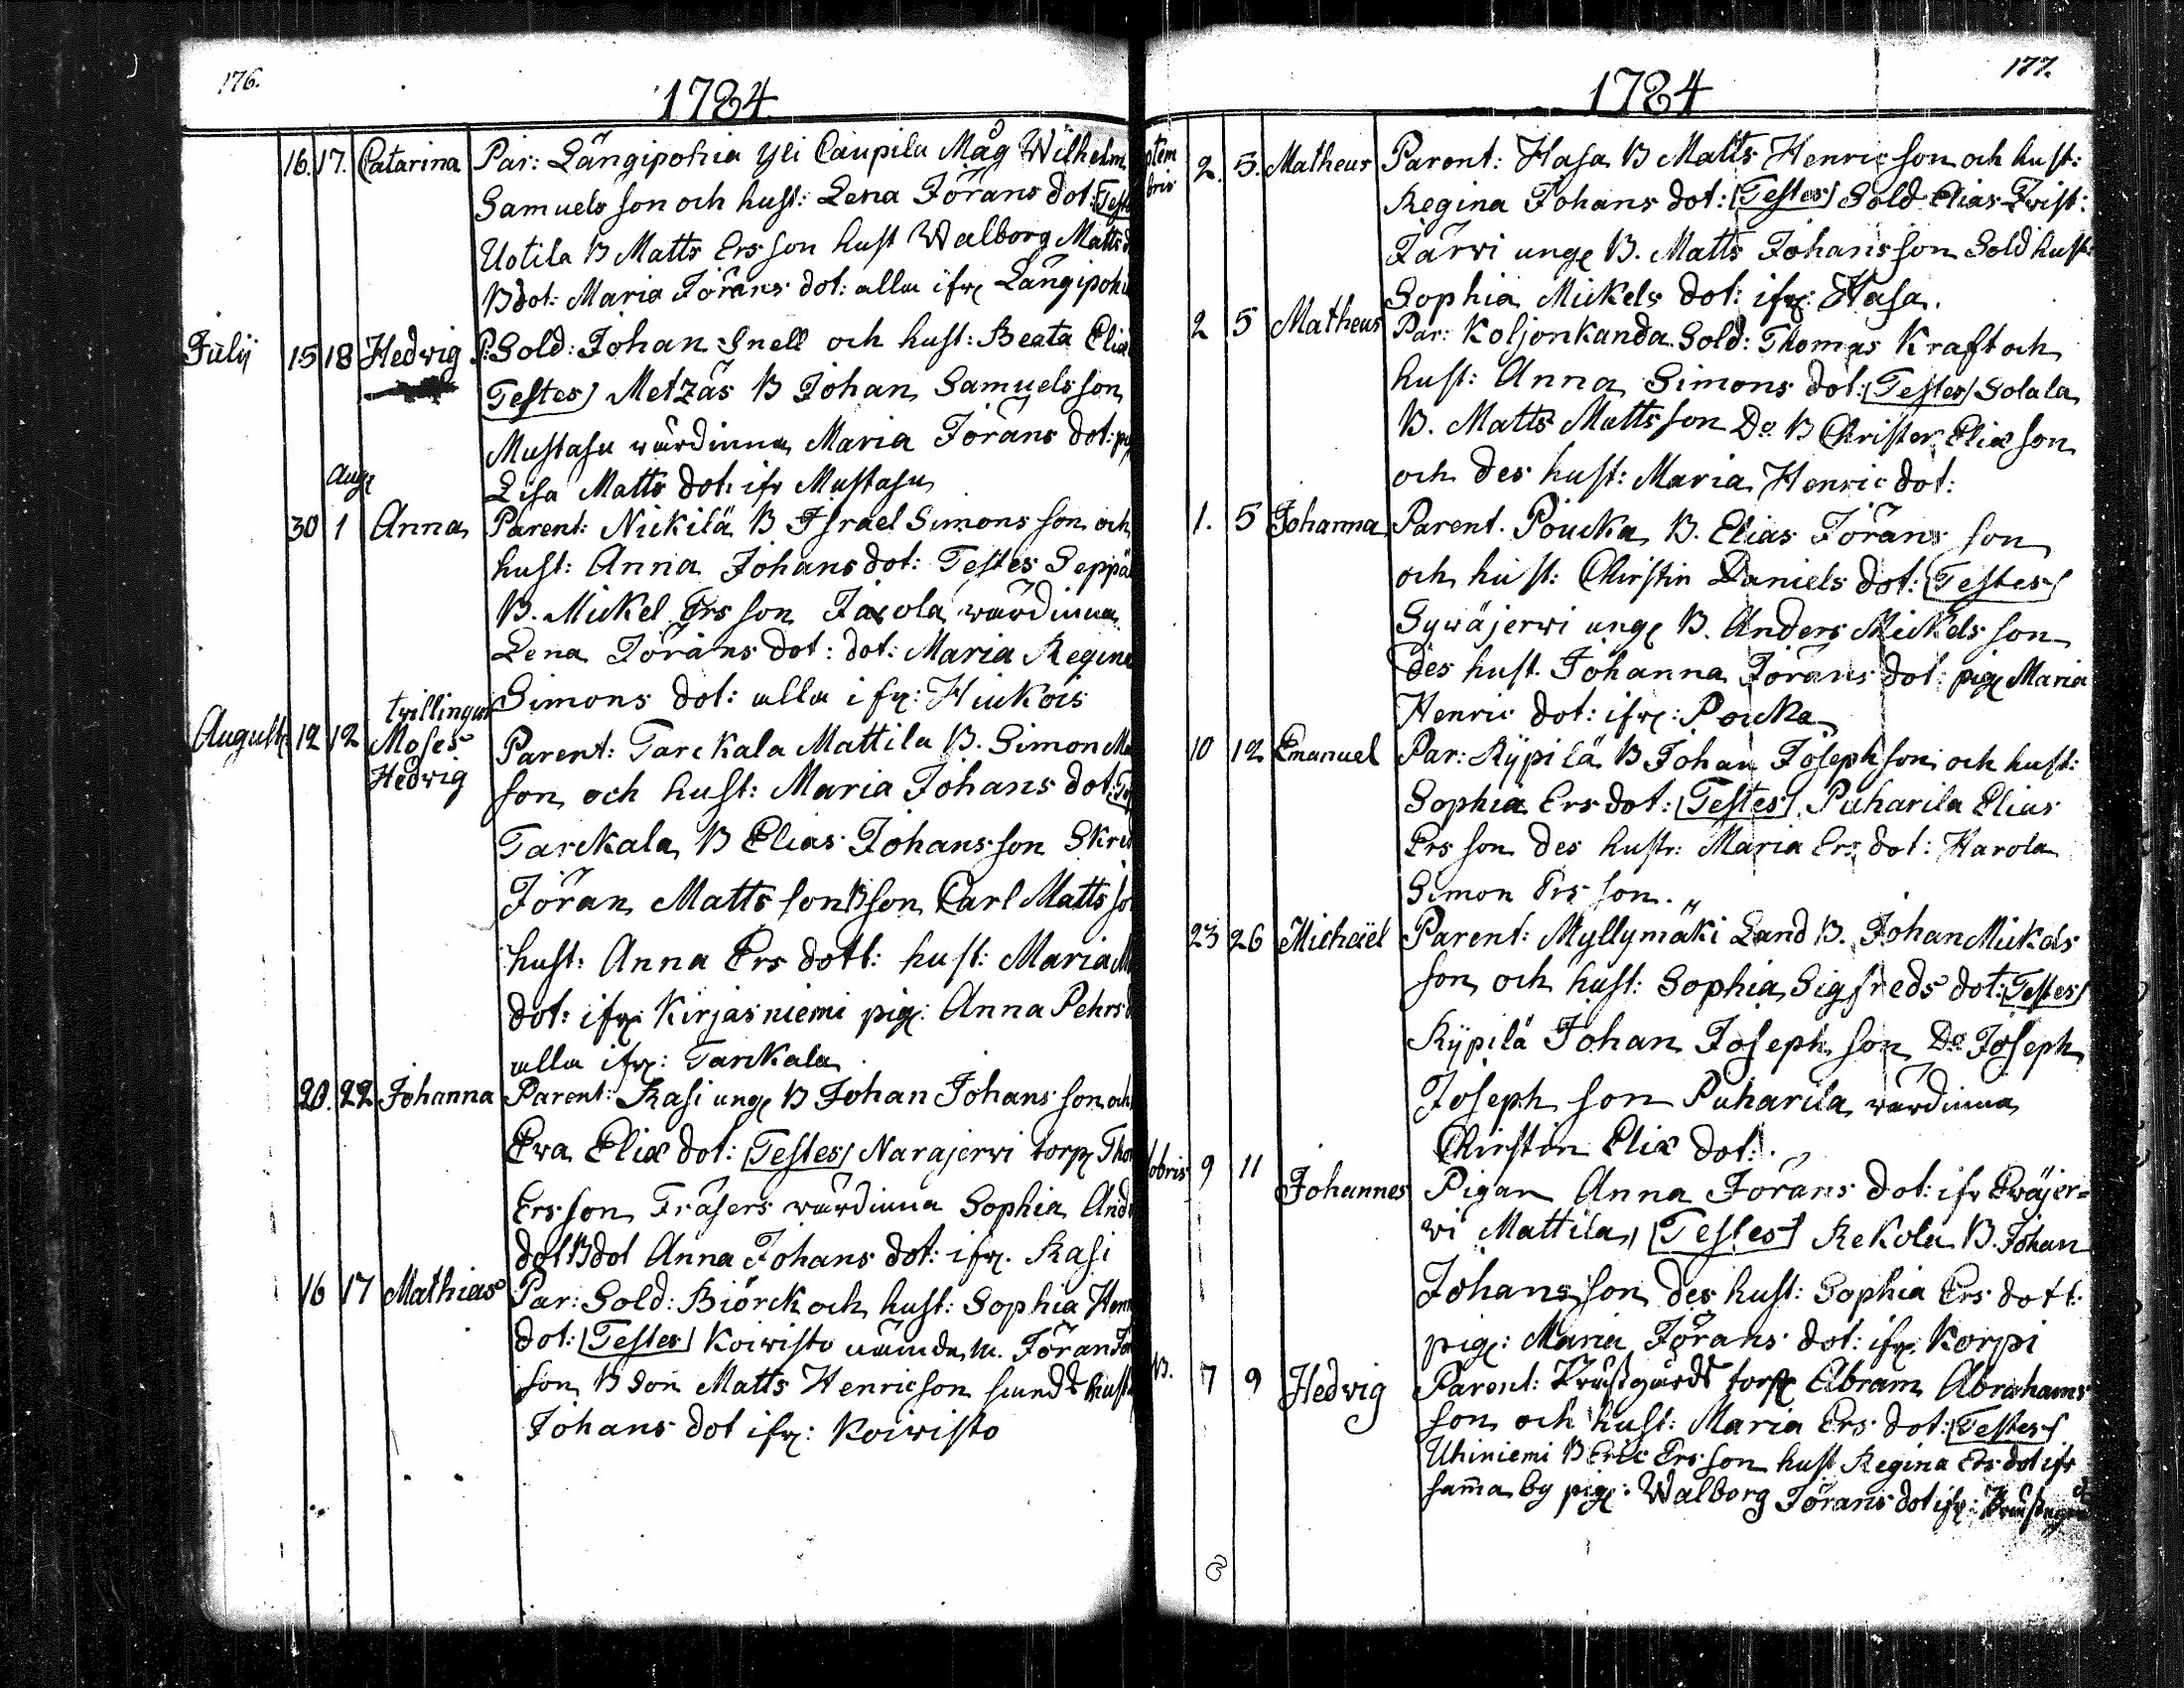 176.
1784.
16. 17. Catarina Par: Längipohia Yli Caupila Måg Wilhelm
Samuels son och hust: Lena Jörans dot: Test
Uotila B Matts Ers son hust Walborg Matts d
Bdot: Maria Jörans dot: alla ifr: Längipohi
Julÿ 15 18 Hedwig P: Sold: Johan Snell och hust: Beata Elia
Testes Metzäs B Johan Samuels son
Mustasa wärdinna Maria Jörans dot: pig
Lisa Matts dot: ifr Mustasa
Aug:
30 1 Anna Parent: Nickilä B Israel Simons son och
hust: Anna Johans dot: Testes Seppä
B. Mickel Ers son Jaxola wärdinna
Lena Jörans dot: dot: Maria Regina
Simons dot: alla ifr: Hiukois
Augusti 12 12 twillingar
Moses
Hedwig
Parent: Tarckala Mattila B. Simon Ma
son och hust: Maria Johans dot: Tes
Tarckala B Elias Johans son Skred
Jöran Matts son Bson Carl Matts so
hust: Anna Ers dott: hust: Maria M
dot: ifr: Kirjasniemi pig: Anna Pehrs d
alla ifr: Tarckala
20. 22 Johanna Parent: Rasi ung B Johan Johans son och
Ewa Eliæ dot: Testes Narajerwi torp: Tho
Ers son Fräsers wärdinna Sophia And
dot Bdot Anna Johans dot: ifr. Rasi
16 17 Mathias Par: Sold: Biörck och hust: Sophia Hen
dot: Testes Koiwisto nämdem. Jöran Jo
son B son Matts Henricson hust
Johans dot ifr: Koiwisto
177.
1784
ptem
bris 2. 5. Matheus Parent: Hasa B Matts Henricson och hust:
Regina Johans dot: Testes Sold Elias Frist:
Järwi ung B. Matts Johansson Sold hust:
Sophia Mickels dot: ifr: Hasa.
2 5 Matheus Par: Koljonkanda Sold: Thomas Kraft och
hust: Anna Simons dot: Testes Solala
B. Matts Matts son Do B Christer Eliæ son
och des hust: Maria Henric dot:
1. 5 Johanna Parent. Poucka B. Elias Jörans son
och hust: Christin Daniels dot: Testes
Sywäjerwi ung B. Anders Mickels son
des hust. Johanna Jörans dot: pig Maria
Henric dot: ifr: Poucka
10 12 Emanuel Par: Kÿpilä B Johan Joseph son och hust:
Sophia Ers dot: Testes Puharila Elias
Ers son des hustr: Maria Ers dot: Harola
Simon Ers son.
23 26 Michaël Parent: Myllymäki Land B. Johan Mickels
son och hust: Sophia Sigfreds dot: Testes
Kÿpilä Johan Joseph son Do Joseph
Joseph son Puharila wärdinna
Christin Eliæ dot:
tobris 9 11 Johannes Pigan Anna Jörans dot: ifr Ewäjer=
wi Mattila, Testes Kekola B. Johan
Johans son des hust: Sophia Ers dott:
pig: Maria Jörans dot: ifr: Korpi
B. 7 9 Hedwig Parent: torp: Abram Abrahams
son och hust: Maria Ers dot: Testes
Uhiniemi B Eric Ers son hust Regina Ers dot ifr
sam̅a by pig: Walborg Jörans dot ifr: